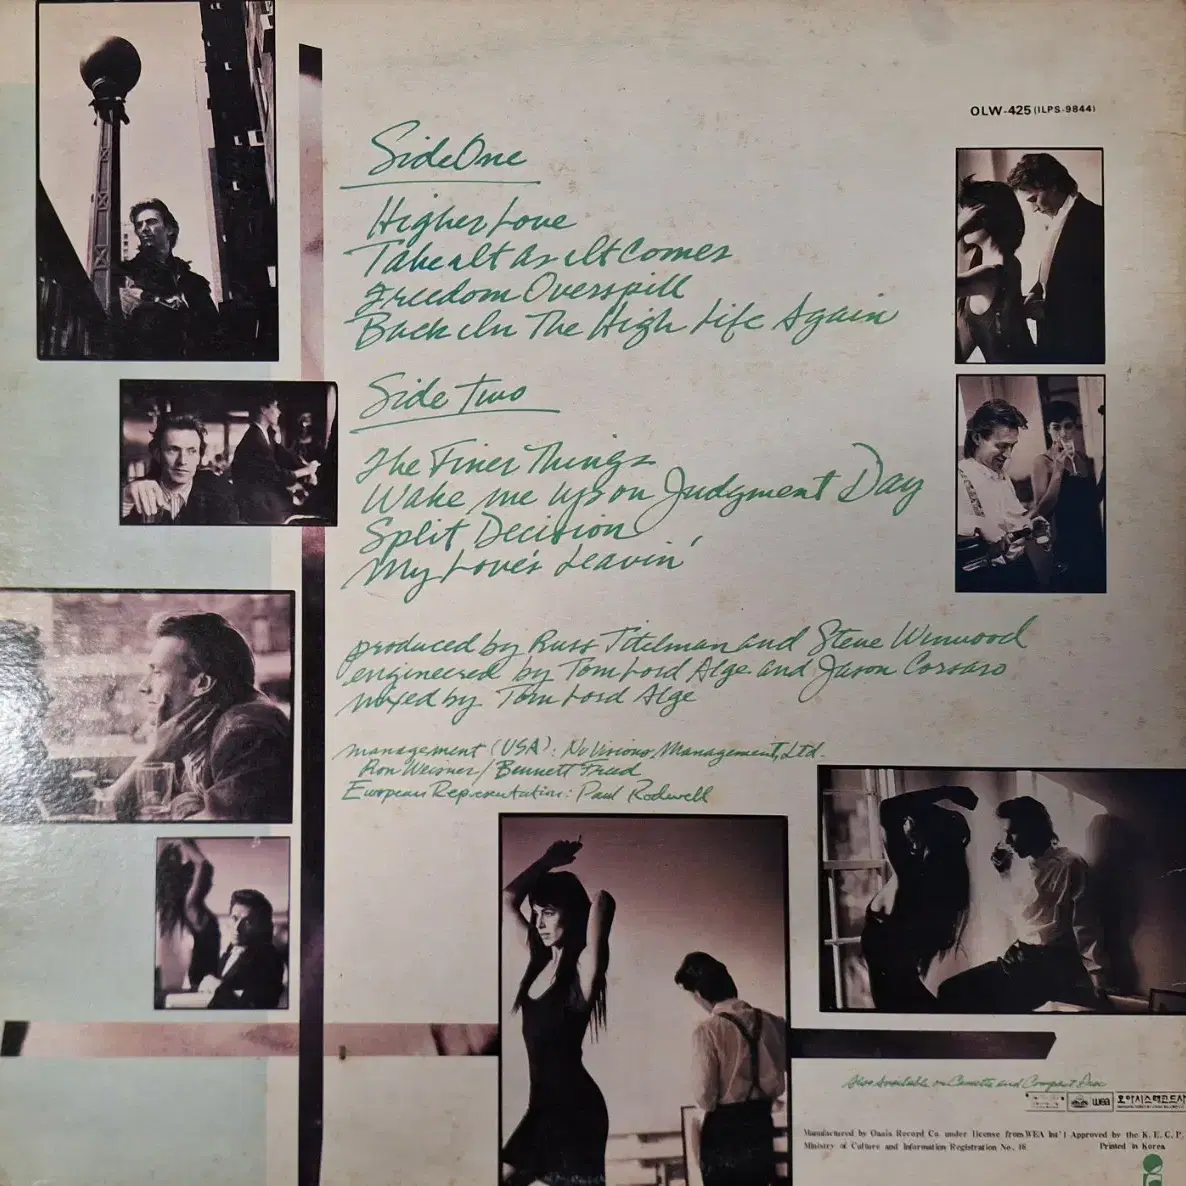 OLW-425 (ILPS-9844)
Side One
Higher Love
Take It As It Comes
Freedom Overspill
Back In The High Life Again
Side Two
The Finer Things
Wake me up on Judgment Day
Split Decision
My Love's Leavin'
produced by Russ Titelman and Steve Winwood
engineered by Tom Lord Alge and Jason Corsaro
mixed by Tom Lord Alge
management (USA): No Visions Management, Ltd.
Ron Weisner / Bennett Freed
European Representation: Paul Rodwell
Also Available on Cassette and Compact Disc
wea 오아시스레코드사
Manufactured by Oasis Record Co. under license from WEA Int'l Approved by the K. E. C. P.
Ministry of Culture and Information Registration No. 16 Printed in Korea